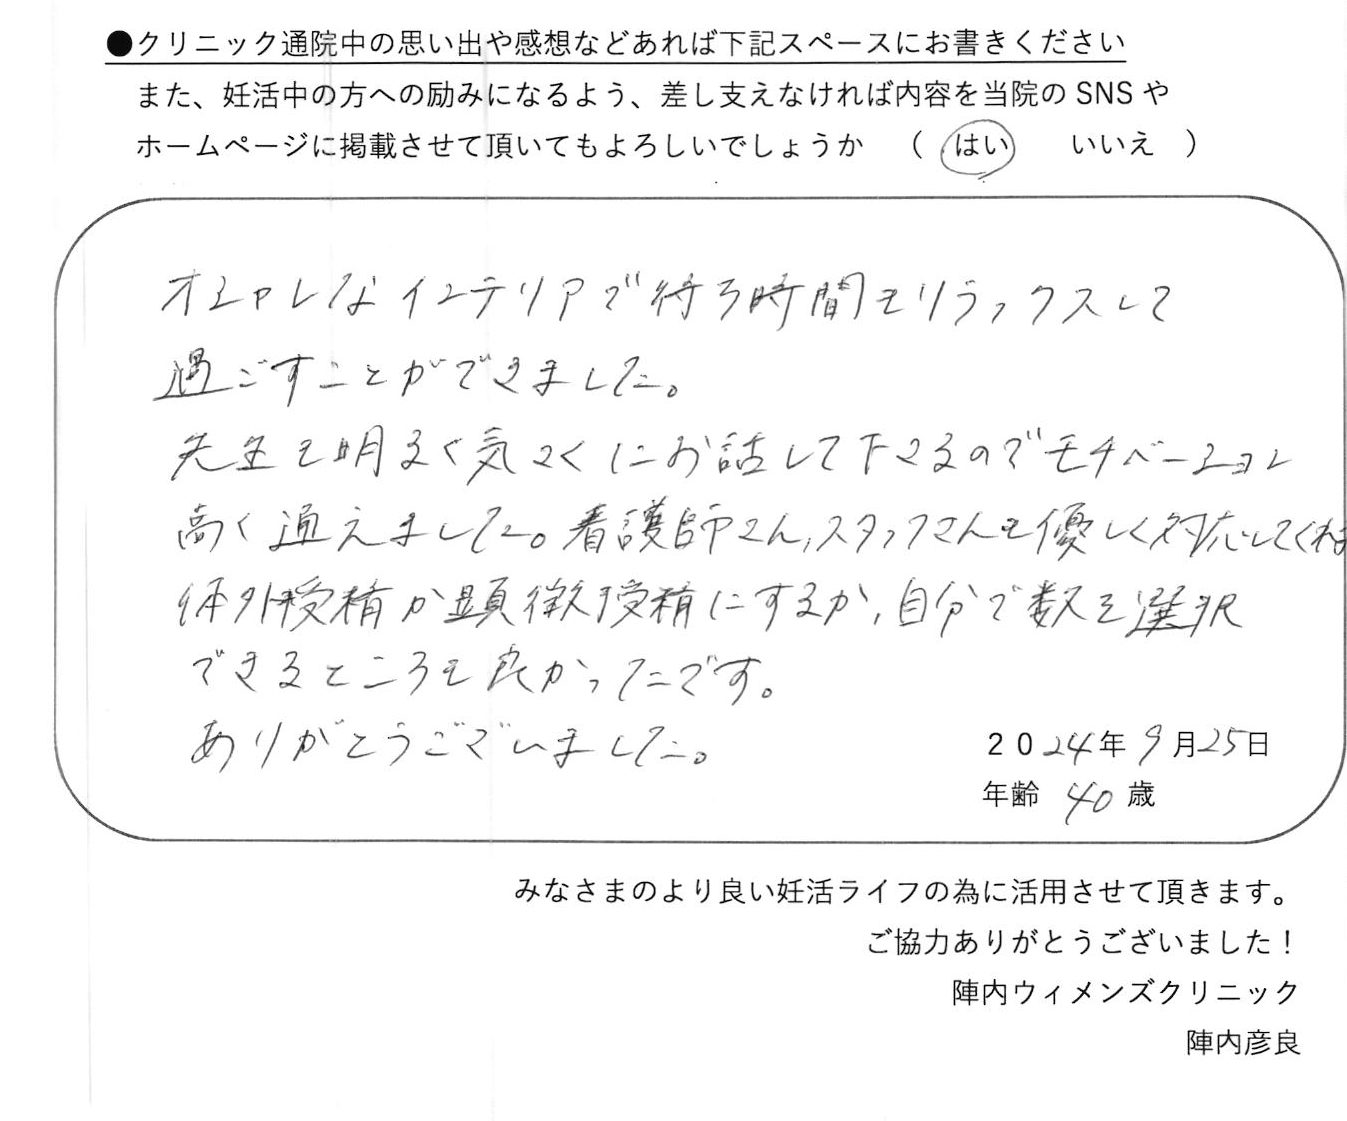 ●クリニック通院中の思い出や感想などあれば下記スペースにお書きください
また、妊活中の方への励みになるよう、差し支えなければ内容を当院の SNS や
ホームページに掲載させて頂いてもよろしいでしょうか （ はい いいえ ）
オシャレなインテリアで待ち時間もリラックスして
過ごすことができました。
先生も明るく気さくにお話して下さるのでモチベーション
高く通えました。看護師さん、スタッフさんも優しく対応してく
体外授精か顕微授精にするか、自分で数を選択
できるところも良かったです。
ありがとうございました。
2024年 9月25日
年齢 40歳
みなさまのより良い妊活ライフの為に活用させて頂きます。
ご協力ありがとうございました！
陣内ウィメンズクリニック
陣内彦良